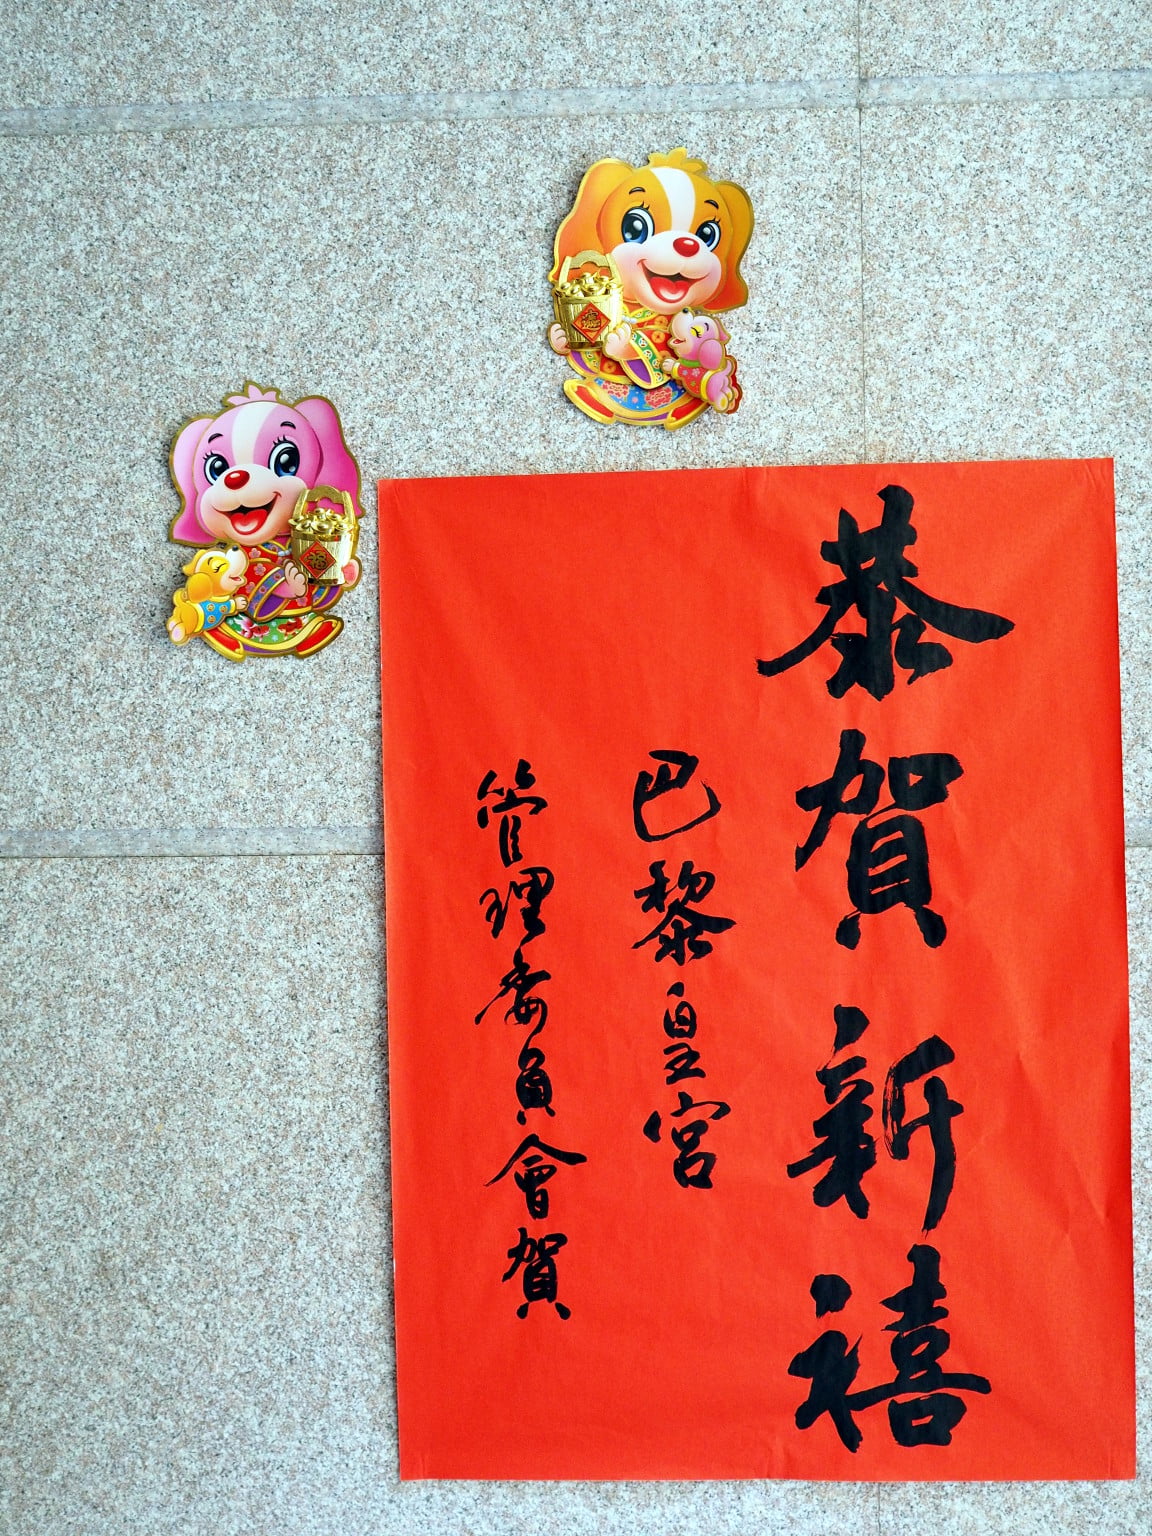 恭賀新禧
巴黎皇宮
管理委員會賀
福